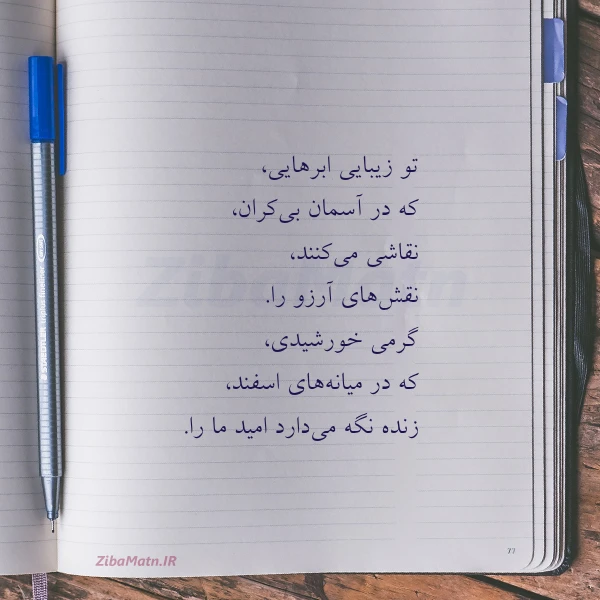 تو زیبایی ابرهایی،
که در آسمان بی‌کران،
نقاشی می‌کنند،
نقش‌های آرزو را.
گرمی خورشیدی،
که در میانه‌های اسفند،
زنده نگه می‌دارد امید ما را.
ZibaMatn
ZibaMatn.IR